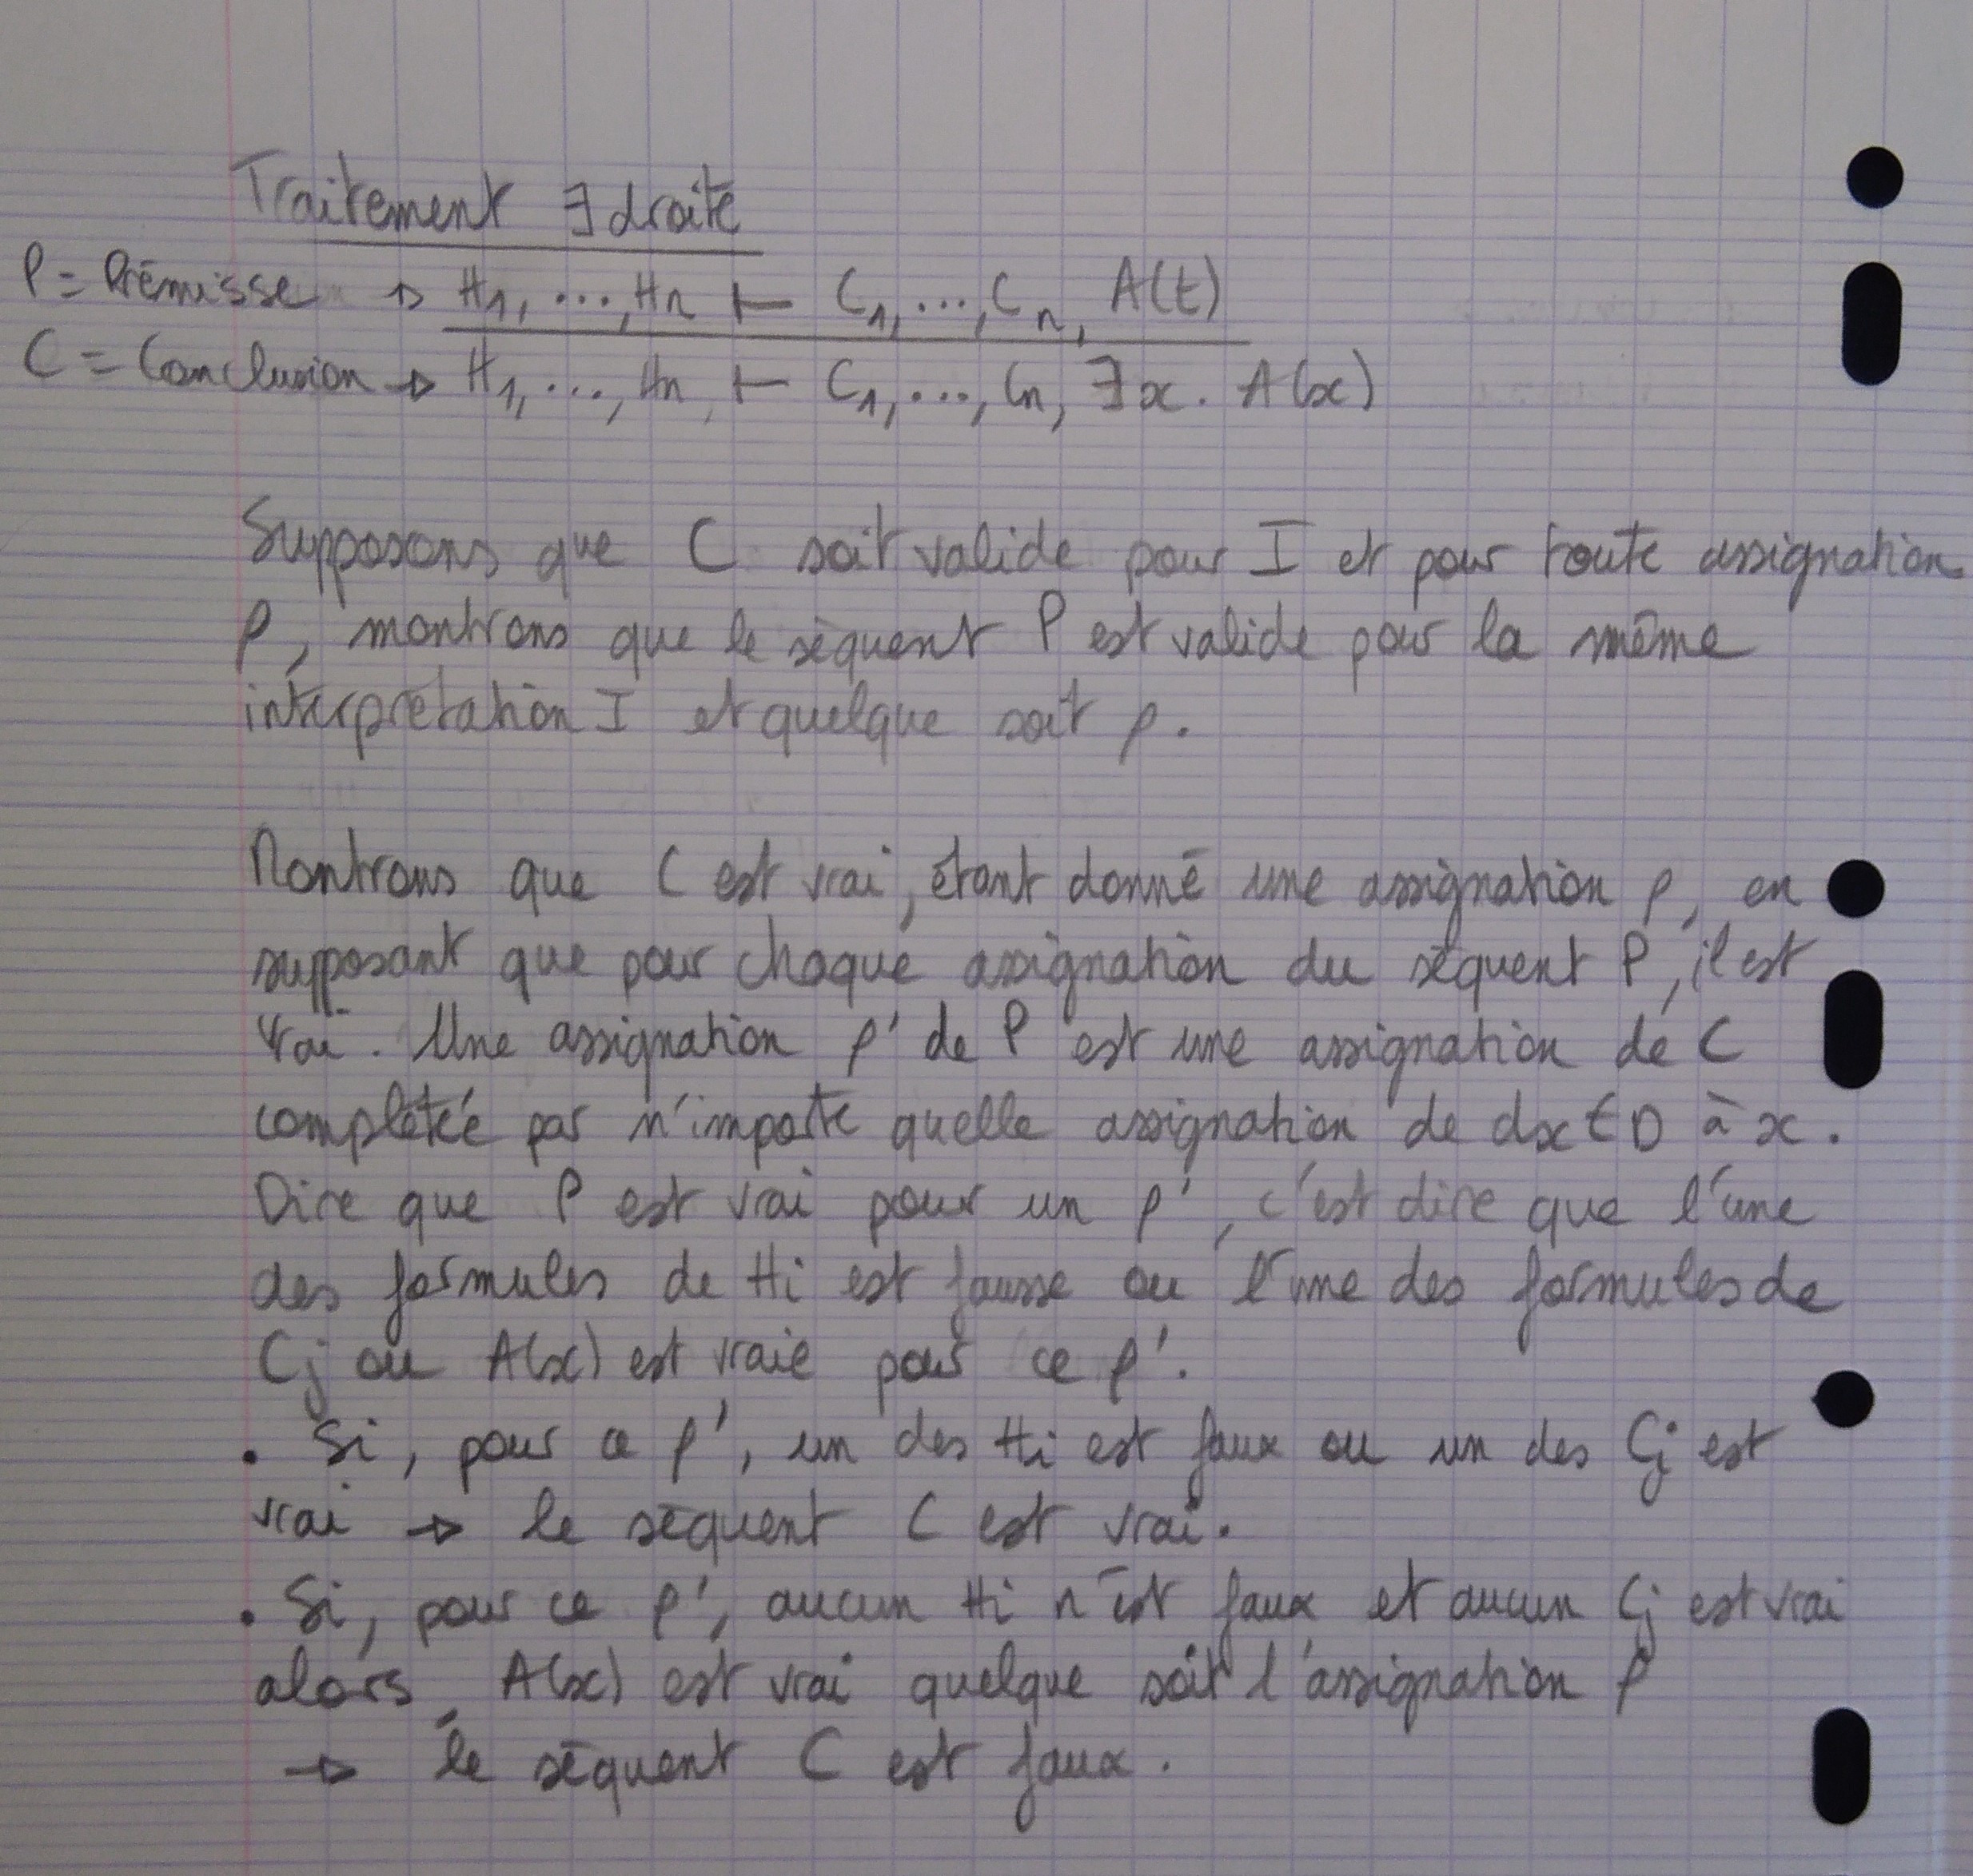 Traitement ∃ droite
P = Prémisse → H1, ..., Hn ⊢ C1, ..., Cn, A(t)
C = Conclusion → H1, ..., Hn, ⊢ C1, ..., Cn, ∃x. A(x)
Supposons que C soit valide pour I et pour toute assignation
ρ, montrons que le séquent P est valide pour la même
interprétation I et quelque soit ρ.
Montrons que C est vrai, étant donné une assignation ρ, en
supposant que pour chaque assignation du séquent P, il est
vrai. Une assignation ρ' de P est une assignation de C
complétée par n'importe quelle assignation de dx ∈ D à x.
Dire que P est vrai pour un ρ', c'est dire que l'une
des formules de Hi est fausse ou l'une des formules de
Cj ou A(x) est vraie pour ce ρ'.
. Si, pour ce ρ', un des Hi est faux ou un des Cj est
vrai → le séquent C est vrai.
. Si, pour ce ρ', aucun Hi n'est faux et aucun Cj est vrai
alors, A(x) est vrai quelque soit l'assignation ρ
→ le séquent C est faux.